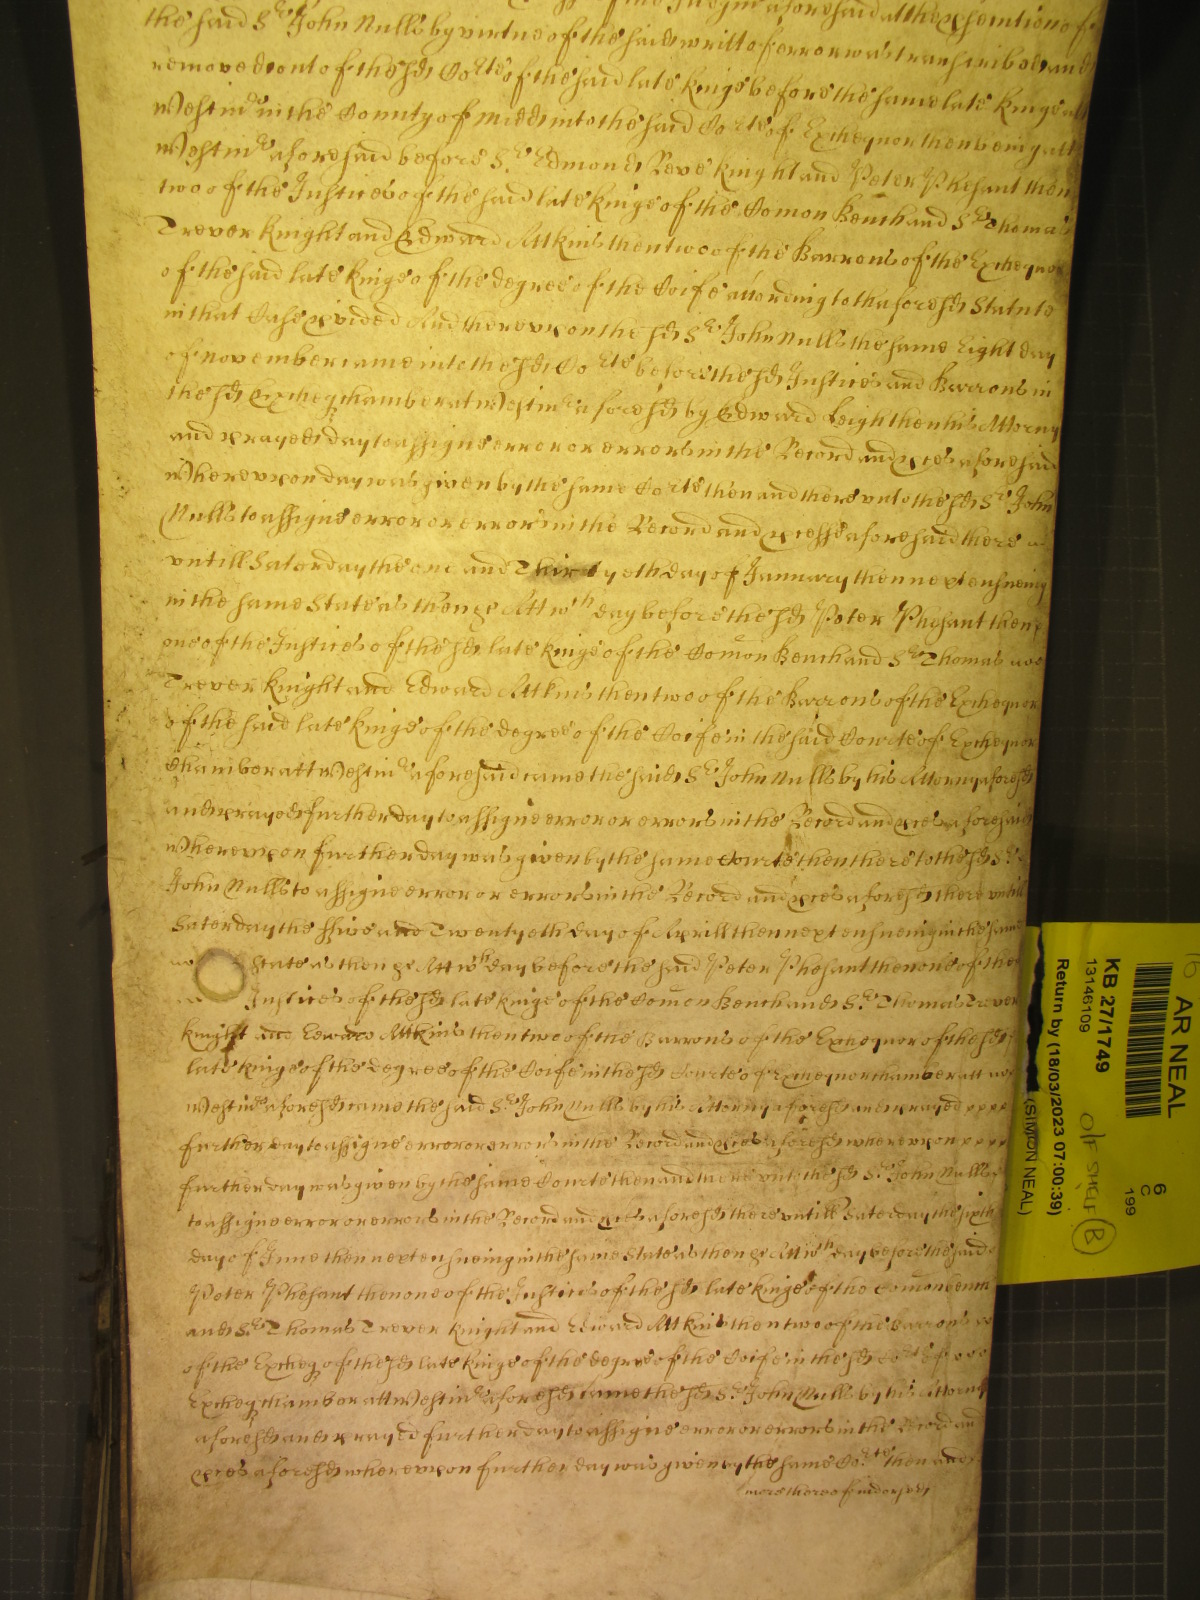 aforesaid att the p'secution of
the said Sr John Mills by virtue of the said writt of error was transcribed and
removed out of the sd Corte of the said late kinge before the same late kinge att
Westmr in the County of Midd into the said Corte of Exchequor then being att
Westmr aforesaid before Sr Edmond Reve knight and Peter Phesant then
twoo of the Justices of the said late kinge of the Comon Bench and Sr Thomas
Trever knight and Edward Attkins then twoo of the Barrons of the Exchequor
of the said late kinge of the degree of the Coife according to thaforesd Statute
in that Case p'vided And therevpon the sd Sr John Mills the same Eight day
of November came into the sd Corte before the sd Justices and Barrons in
the sd Excheq chamber at Westmr aforesd by Edward Leigh then his Attorny
and prayed day to assigne error or errors in the Record and p'ces aforesaid
Wherevpon day was given by the same Corte then and there vnto the sd Sr John
Mills to assigne error or errors in the Record and p'cesse aforesaid there
vntill Satorday the one and Thirtyeth day of January then next ensueing
in the same State as then &c Att wch day before the sd Peter Phesant then
one of the Justices of the sd late kinge of the Comon Bench and Sr Thomas
Trever knight and Edward Attkins then twoo of the Barrons of the Exchequor
of the said late kinge of the degree of the Coife in the said Courte of Exchequor
Chamber att Westmr aforesaid came the said Sr John Mills by his Attorny aforesd
and prayed further day to assigne error or errors in the Record and p'ces aforesaid
Wherevpon further day was given by the same Courte then there to the sd Sr
John Mills to assigne error or errors in the Record and p'ces aforesd there vntill
Saterday the ffive and Twentyeth day of Aprill then next ensueing in the same
State as then &c Att wch day before the said Peter Phesant then one of the
Justices of the sd late kinge of the Comon Bench and Sr Thomas Trever
knight and Edward Attkins then twoo of the Barrons of the Exchequor of the sd
late kinge of the degree of the Coife in the sd Courte of Exchequor chamber att
Westmr aforesd came the said Sr John Mills by his Attorny aforesd and prayed
further day to assigne error or errors in the Record and p'ces aforesd wherevpon
further day was given by the same Courte then and there vnto the sd Sr John Mills
to assigne error or errors in the Record and p'ces aforesd there vntill Saterday the sixth
day of June then next ensueing in the same State as then &c Att wch day before the said
Peter Phesant then one of the Justices of the sd late kinge of the Comon Bench
and Sr Thomas Trever knight and Edward Attkins then twoo of the Barrons
of the Excheq of the sd late kinge of the degree of the Coife in the sd Corte of
Excheq chamber att Westmr aforesd came the sd Sr John Mills by his Attorny
aforesd and prayed further day to assigne error or errors in the Record and
p'ces aforesd wherevpon further day was given by the same Corte then and
more thereof indorsed
AR NEAL
6
C
199
KB 27/1749
13146109
O/F SHELF B
Return by (18/03/2023 07:00:39)
(SIMON NEAL)